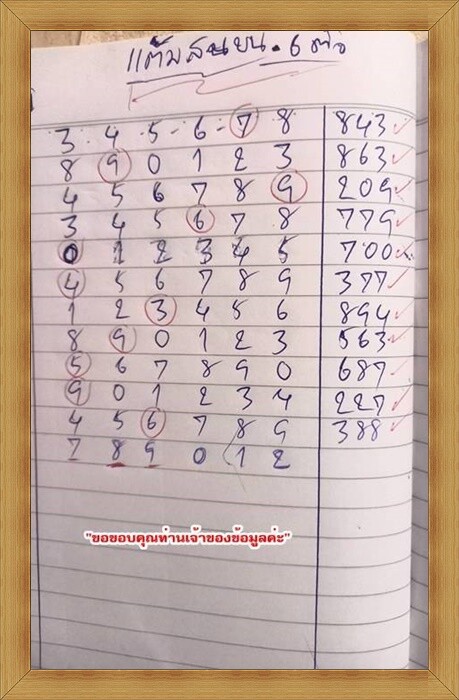 แต้มสนบน. 6 ตัว
3 . 4 . 5 - 6 - 7 8 843 ✓
8 9 0 1 2 3 863 ✓
4 5 6 7 8 9 209 ✓
3 4 5 6 7 8 779 ✓
0 1 2 3 4 5 700 ✓
4 5 6 7 8 9 377 ✓
1 2 3 4 5 6 894 ✓
8 9 0 1 2 3 563 ✓
5 6 7 8 9 0 687 ✓
9 0 1 2 3 4 227 ✓
4 5 6 7 8 9 388 ✓
7 8 9 0 1 2
"ขอขอบคุณท่านเจ้าของข้อมูลค่ะ"